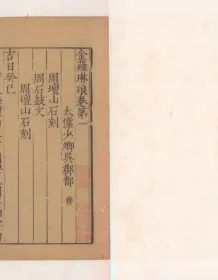 金薤琳琅卷第一
太僕少卿吳郡都 穆
周壇山石刻
周石鼓文
周壇山石刻
吉日癸巳